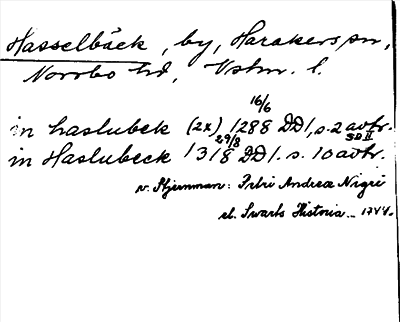 Hasselbäck, by, Harakers sn,
Norrbo hd, Vstm. l.
16/6
in haslubek (2x) 1288 DD 1, s. 2 avtr.
29/8 SD II
in Haslubeck 1318 DD 1. s. 10 avtr.
v. Stjernman: Petri Andreæ Nigri
el. Swarts Historia – 1744.